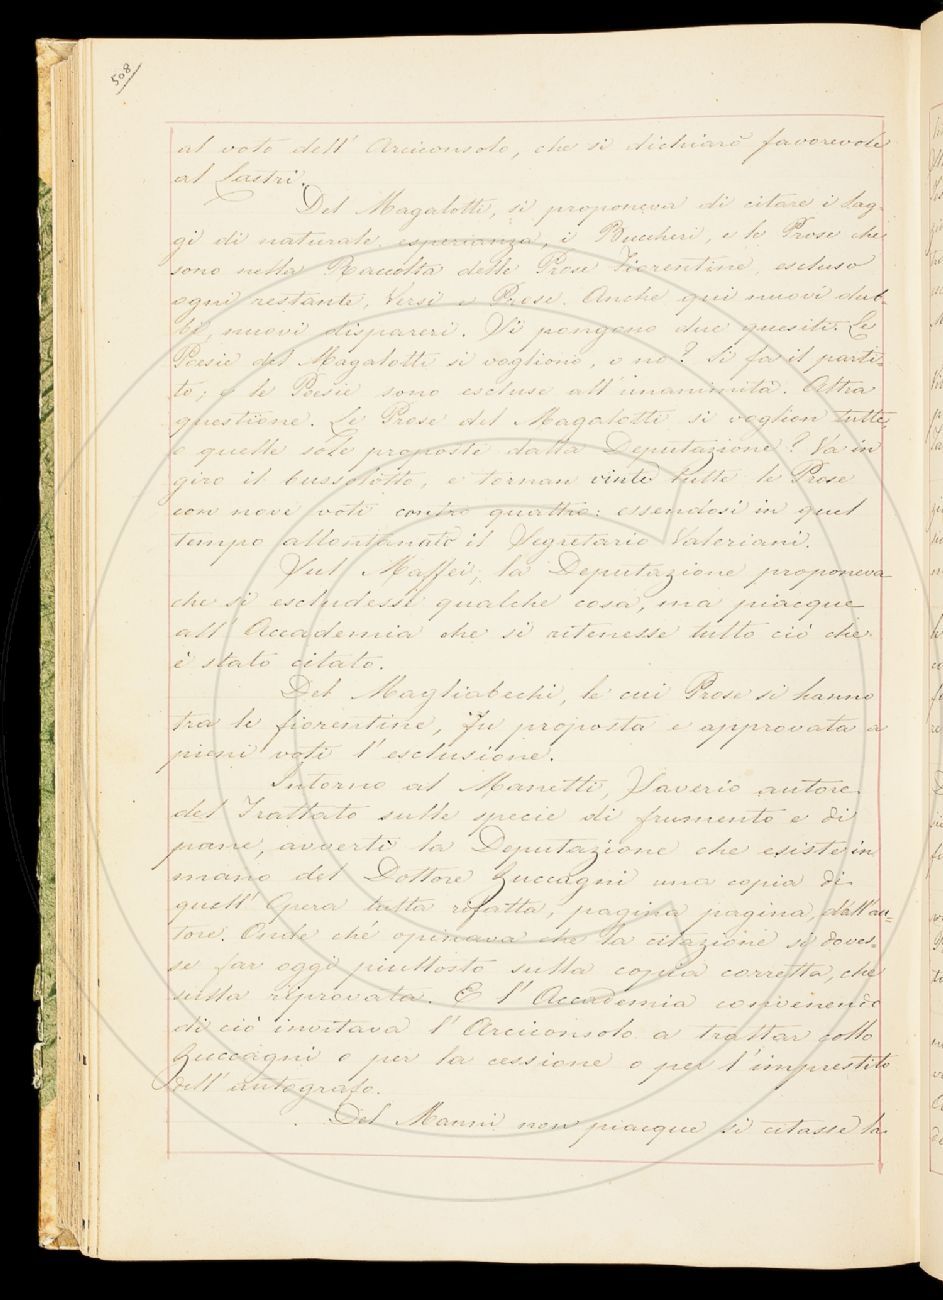 508
al voto dell' Arciconsolo, che si dichiarò favorevole
al Lastri.
Del Magalotti, si proponeva di citare i Sag-
gi di naturale esperianza, i Buccheri, e le Prose che
sono nella Raccolta delle Prose Fiorentine, escluso
ogni restante, Versi e Prose. Anche qui nuovi dub-
bi, nuovi dispareri. Si pongono due quesiti. Le
Poesie del Magalotti si vogliono, o no? Si fa il parti-
to; e le Poesie sono escluse all'unanimità. Altra
questione. Le Prose del Magalotti si voglion tutte
o quelle sole proposte dalla Deputazione? Va in
giro il bussolotto, e tornan vinte tutte le Prose
con nove voti contro quattro: essendosi in quel
tempo allontanato il Segretario Valeriani.
Sul Maffei, la Deputazione proponeva
che si escludesse qualche cosa, ma piacque
all' Accademia che si ritenesse tutto ciò che
è stato citato.
Del Magliabechi, le cui Prose si hanno
tra le fiorentine, fu proposta e approvata a
pieni voti l'esclusione.
Intorno al Manetti, Saverio autore
del Trattato sulle specie di frumento e di
pane, avvertì la Deputazione che esiste in
mano del Dottore Zuccagni una copia di
quell' Opera tutta rifatta, pagina pagina, dall'au-
tore. Onde chè opinava che la citazione si doves-
se far oggi piuttosto sulla copia corretta, che
sulla riprovata. E l'Accademia convenendo
di ciò invitava l'Arciconsolo a trattar collo
Zuccagni o per la cessione o per l'imprestito
dell'autografo.
Del Manni non piacque si citasse la